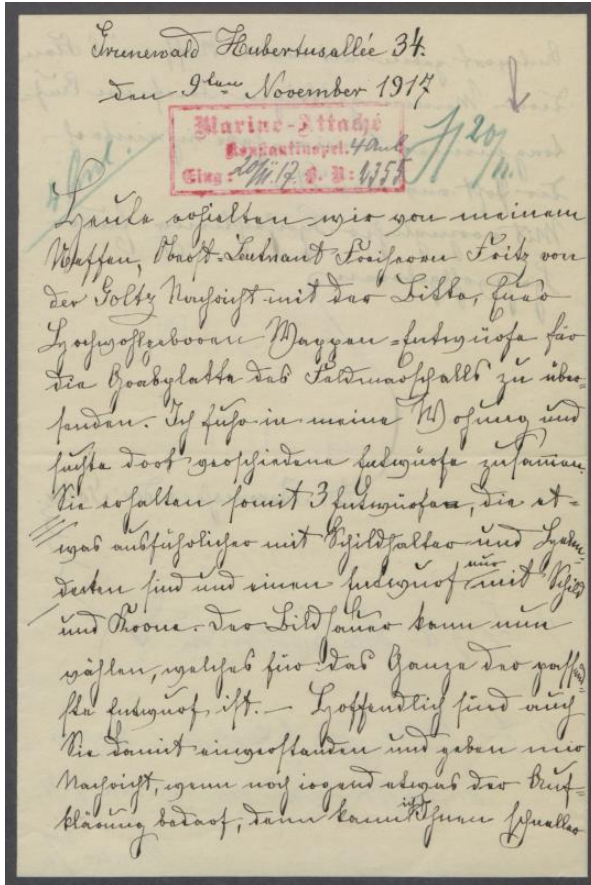 Grunewald Hubertusallée 34.
den 9ten November 1917
Marine-Attaché
Konstantinopel. 4 Anl.
Eing: 20/11.17. B. N: 4355
20/11.
Heute erhielten wir von meinem
Neffen, Oberst-Leutnant Freiherrn Fritz von
der Goltz Nachricht mit der Bitte, Euer
Hochwohlgeboren Wappen-Entwürfe für
die Grabplatte des Feldmarschalls zu über-
senden. Ich fuhr in meine Wohnung und
suchte dort verschiedene Entwürfe zusammen.
Sie erhalten somit 3 Entwürfe, die et-
was ausführlicher mit Schildhalter und Helm-
decken sind und einen Entwurf nur mit Schild
und Krone. Der Bildhauer kann nun
wählen, welches für das Ganze der passend-
ste Entwurf ist. – Hoffendlich sind auch
Sie damit einverstanden und geben mir
Nachricht, wenn noch irgend etwas der Auf-
klärung bedarf, denn kann ich Ihnen schneller